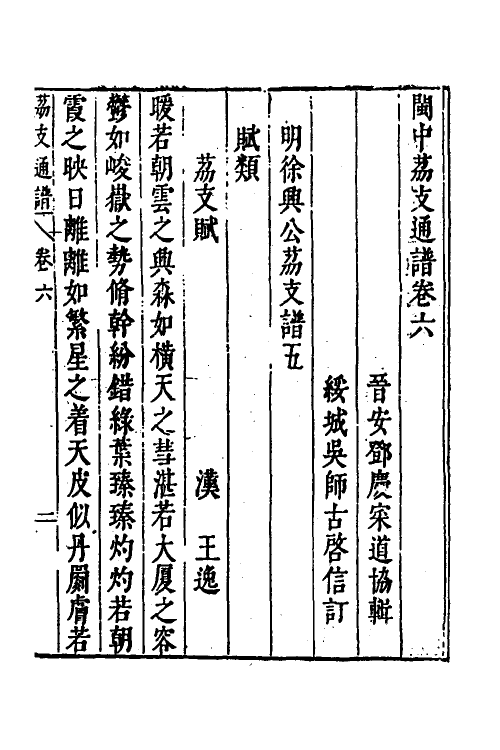 閩中茘支通譜卷六
晉安鄧慶寀道協輯
綏城吳師古啓信訂
明徐興公茘支譜五
賦類
茘支賦　漢　王逸
暖若朝雲之興森如橫天之彗湛若大厦之容
鬱如峻嶽之勢脩幹紛錯綠葉臻臻灼灼若朝
霞之映日離離如繁星之着天皮似丹罽膚若
茘支通譜　卷六　二